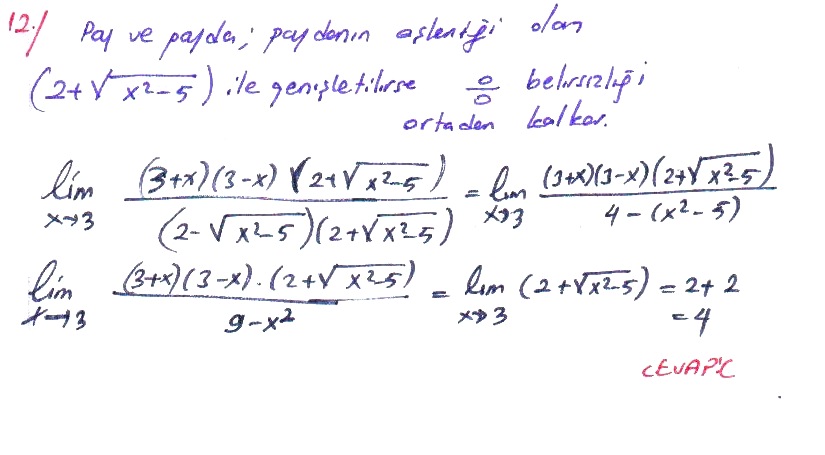 12./ Pay ve payda; paydanın eşleniği olan
(2+√(x²-5)) ile genişletilirse 0/0 belirsizliği
ortadan kalkar.
lim x→3 (3+x)(3-x)(2+√(x²-5)) / (2-√(x²-5))(2+√(x²-5)) = lim x→3 (3+x)(3-x)(2+√(x²-5)) / 4-(x²-5)
lim x→3 (3+x)(3-x).(2+√(x²-5)) / 9-x² = lim x→3 (2+√(x²-5)) = 2+2
= 4
CEVAP:C